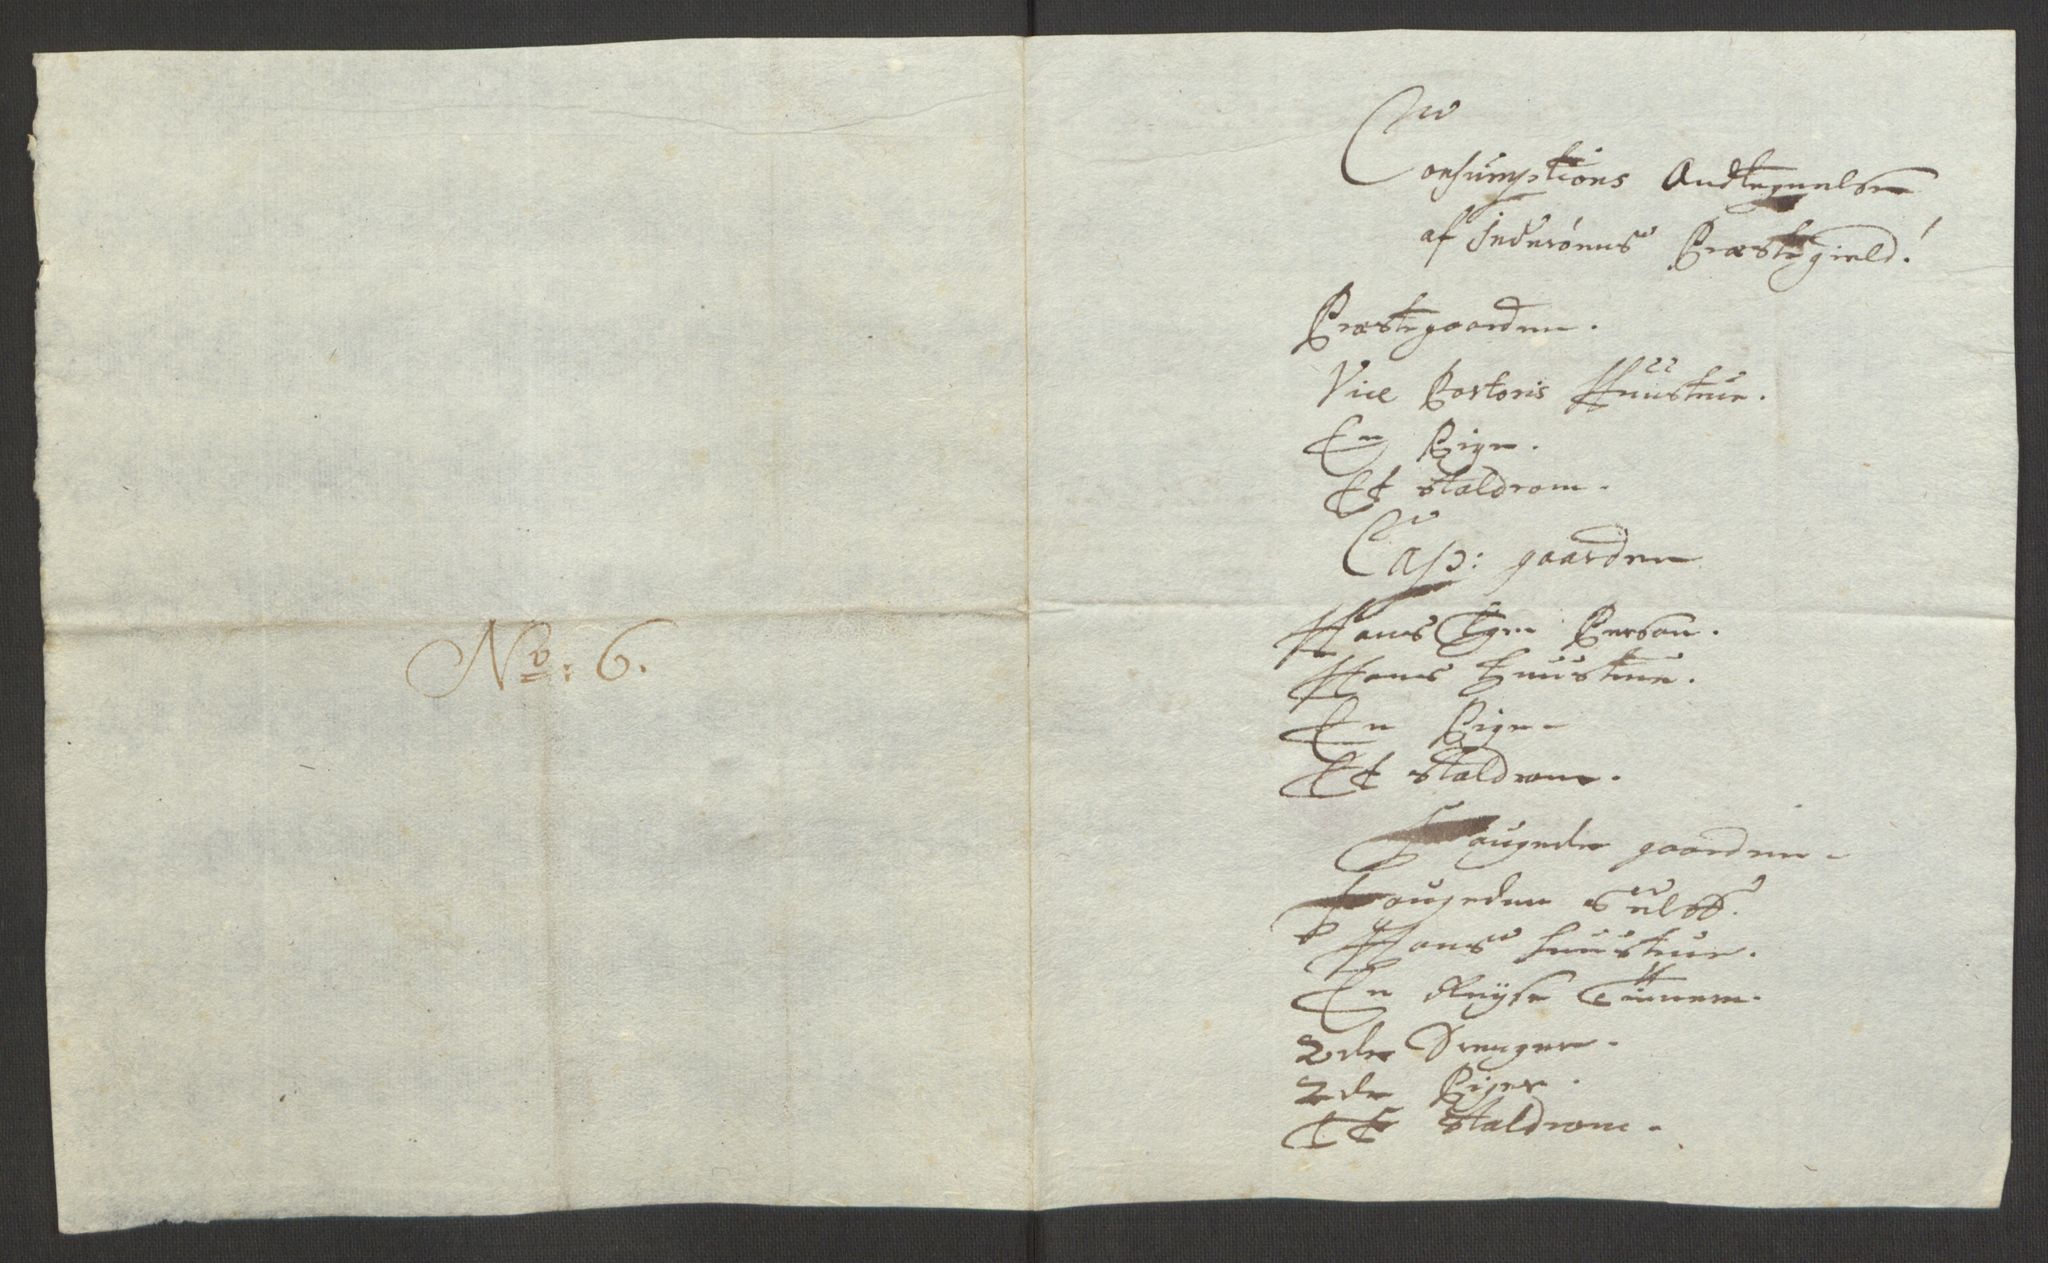 No: 6.
Consumptions Andtegnelse
af Inderöens Præstegield.
Præstegaarden.
Vice Pastoris Huustrue.
En Pige.
Et staldrom.
Cap: gaarden
Hans Egen Person.
Hans huustrue.
En Pige
Et staldrom.
Fougede gaarden
Fougeden Selff.
Hans huustrue.
En
2de Drenger.
2de Piger.
Et staldrom.